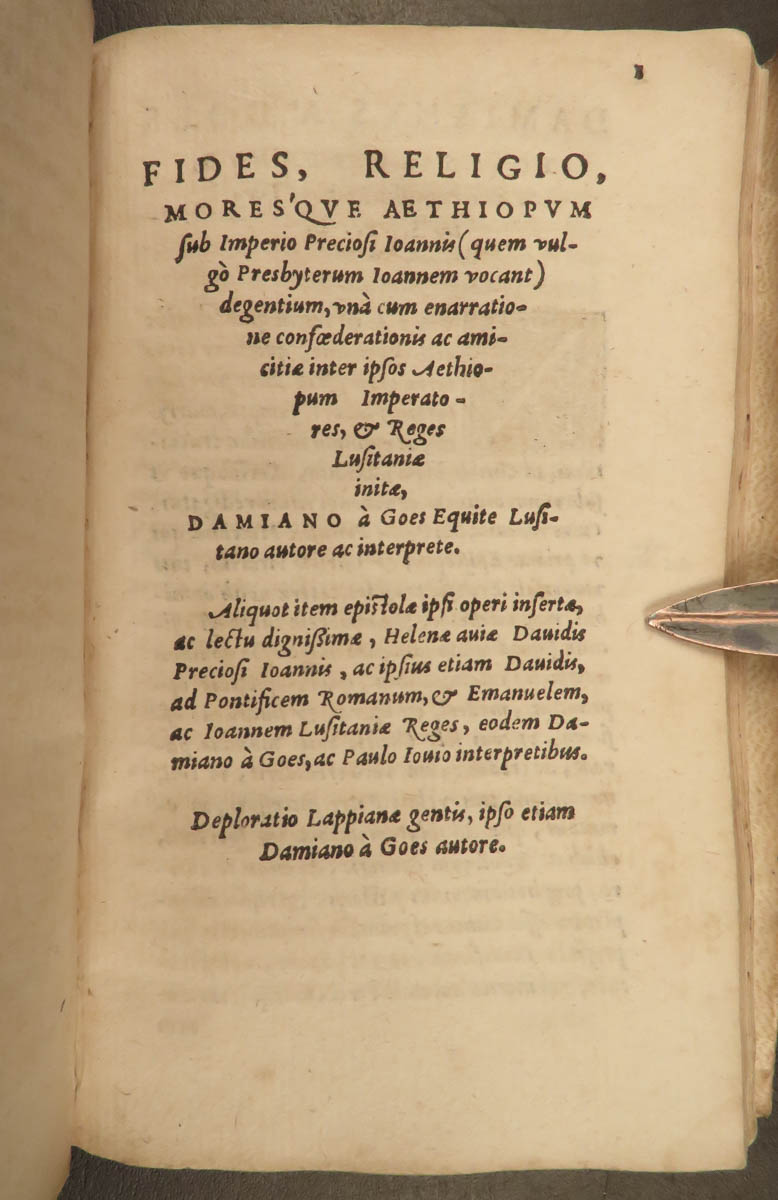 1
FIDES, RELIGIO,
MORES'QVE AETHIOPVM
ſub Imperio Precioſi Ioannis (quem vul-
gò Presbyterum Ioannem vocant)
degentium, vnà cum enarratio-
ne confœderationis ac ami-
citiæ inter ipſos Aethio-
pum Imperato-
res, & Reges
Luſitaniæ
initæ,
DAMIANO à Goes Equite Luſi-
tano autore ac interprete.
Aliquot item epiſtolæ ipſi operi inſertæ,
ac lectu digniſsimæ, Helenæ auiæ Dauidis
Precioſi Ioannis, ac ipſius etiam Dauidis,
ad Pontificem Romanum, & Emanuelem,
ac Ioannem Luſitaniæ Reges, eodem Da-
miano à Goes, ac Paulo Iouio interpretibus.
Deploratio Lappianæ gentis, ipſo etiam
Damiano à Goes autore.